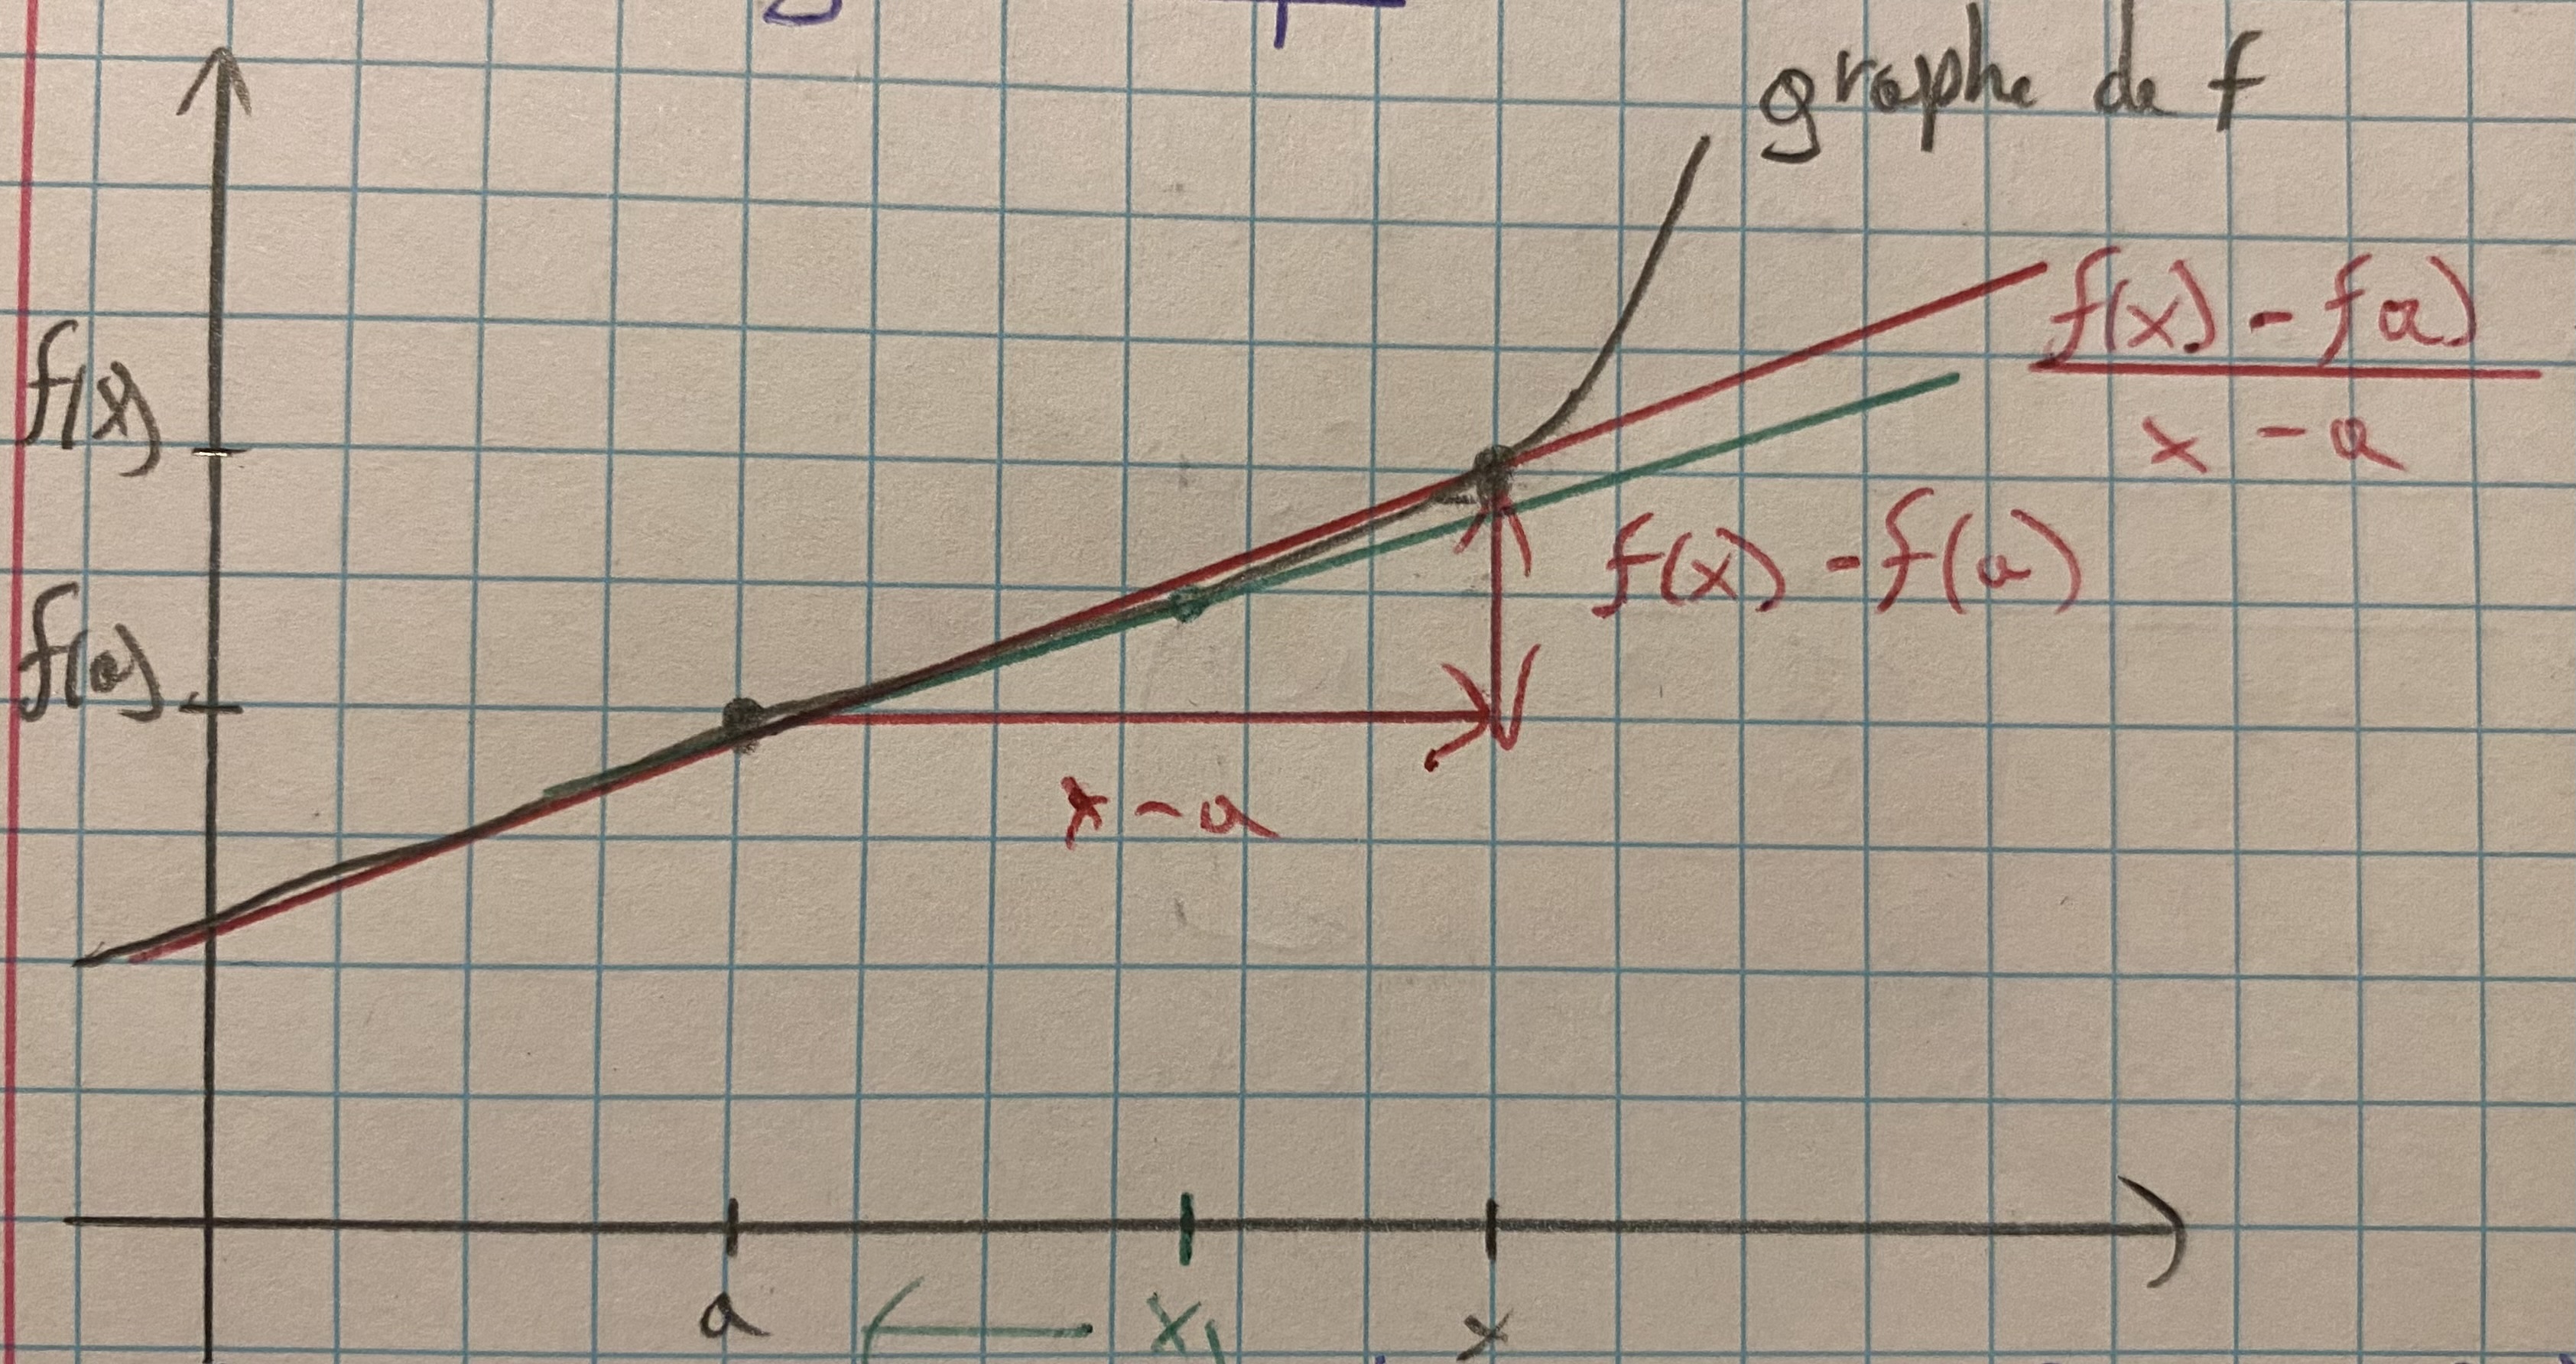 graphe de f
f(x) - f(a)
x - a
f(x)
f(x) - f(a)
f(a)
x - a
a
x₁
x